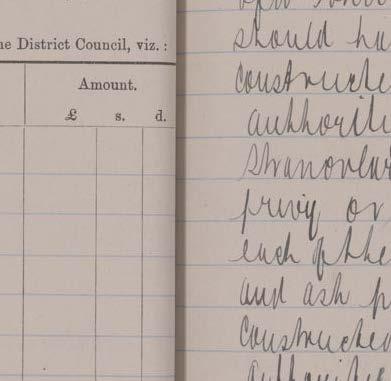 e District Council, viz. :
Amount.
£ s. d.
should ha
constructe
authoriti
Stranorlar
privy or
each of the
and ash p
constructed
authoritie